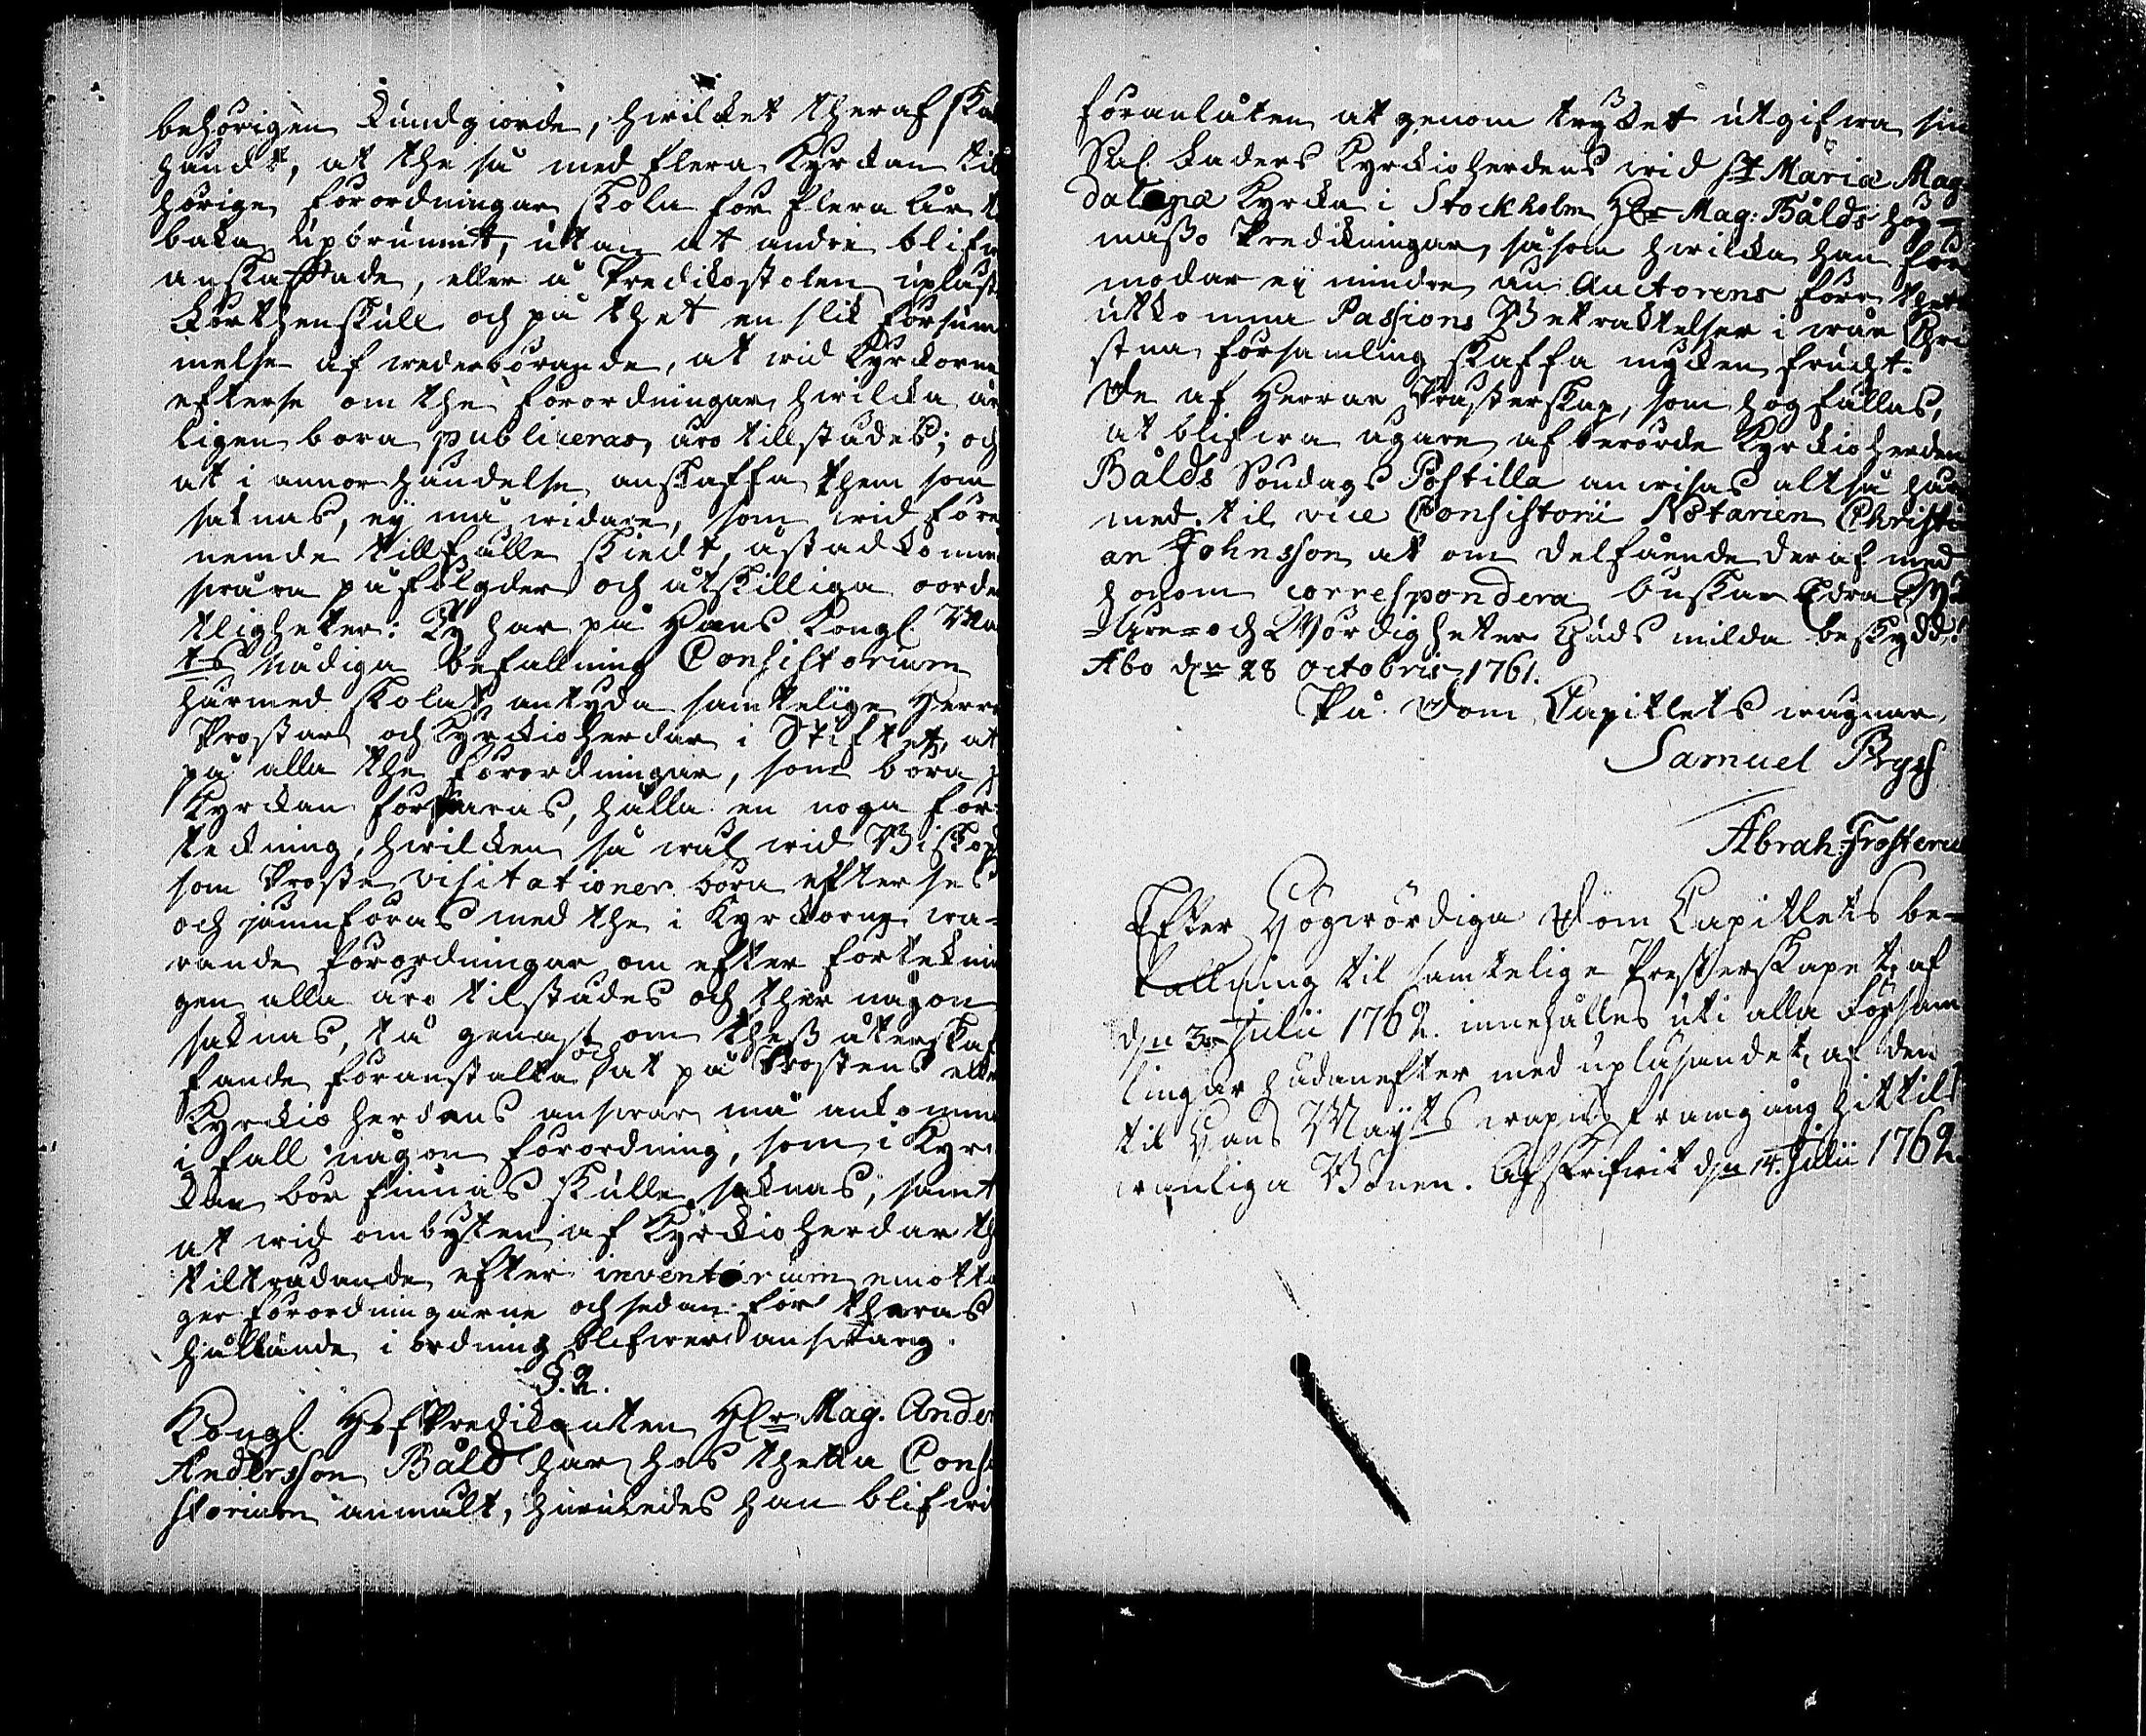 behörigen Kundgiorde, hwilcket theraf skal
händt, at the så med flera Kyrckan til
hörige förordningar skola för flera år til
baka upbrunnit, utan at andre blifwi
anskaffade, eller å Predikostolen upläste
Förthenskull och på thet en slik försum
melse af wederbörande, at wid Kyrckorne
efterse om the förordningar, hwilcka år
ligen böra publiceras, äro tillstädes; och
at i annor händelse anskaffa them som
saknas, ej må widare, som wid före
nemde tillfälle skiedt, åstadkomma
swåra påfölgder och åtskilliga oorde
tligheter: Ty har på Hans Kongl. Ma
ts Nådiga befallning Consistorium
härmed skolat antyda samtelige Herrar
Prostar och Kyrckioherdar i Stiftet, at
på alla the förordningar, som böra
Kyrckan förwaras, hålla en noga för-
teckning, hwilcken så wäl wid Biskops
som Proste visitationer böra efterses
och jämnföras med the i Kyrckorne wa-
rande förordningar om efter förteknin
gen alla äro tilstädes och ther någon
saknas, tå genast om thess återskaf
fande föranstalta, och at på Prostens eller
Kyrckioherdens answar må ankomma
i fall någon förordning, som i Kyrc
kan bör finnas skulle saknas, samt
at wid ombyten af Kyrckioherdar th
tilträdande efter inventarium emotta
ger förordningarne och sedan för theras
hållande i ordning blifwer answarig.
§. 2.
Kongl. HofPredikanten HErr Mag. Ander
Andersson Båld har hos thetta Consi
storium anmält, huruledes han blifwit
föranlåten at genom trycket utgifwa sin
Sal. Faders Kyrckioherdens wid St Maria Mag-
dalena Kyrcka i Stockholm HErr Mag. Bålds hög-
mässo Predikningar, såsom hwilcka han för
modar ej mindre än Auctorens förr thet
utkomna Passions Betracktelser i wår Chri
stna församling skaffa mycken frucht.
De af Herrar Prästerskap, som hogfällas,
at blifwa ägare af berörde Kyrckioherden
Bålds Söndags Postilla anwisas altså här
med til vice Consistorii Notarien Christi
an Johnsson at om delfående deraf med
honom correspondera önskar Edra Wäl
Äre- och Wördigheter Guds milda beskydd!
Åbo den 28 octobris 1761.
På Dom Capitlets wägnar
Samuel Pryss
Abrah: Frosterus
Efter Högwördiga Dom Capitlets be-
fallning til samtelige Presterskapet af
den 3 Julii 1762. innehålles uti alla Försam
lingar hädanefter med upläsandet af den
til Hans Maijts wapns framgång hittils
wanliga Bönen. Afskrifwit den 14. Julii 1762.